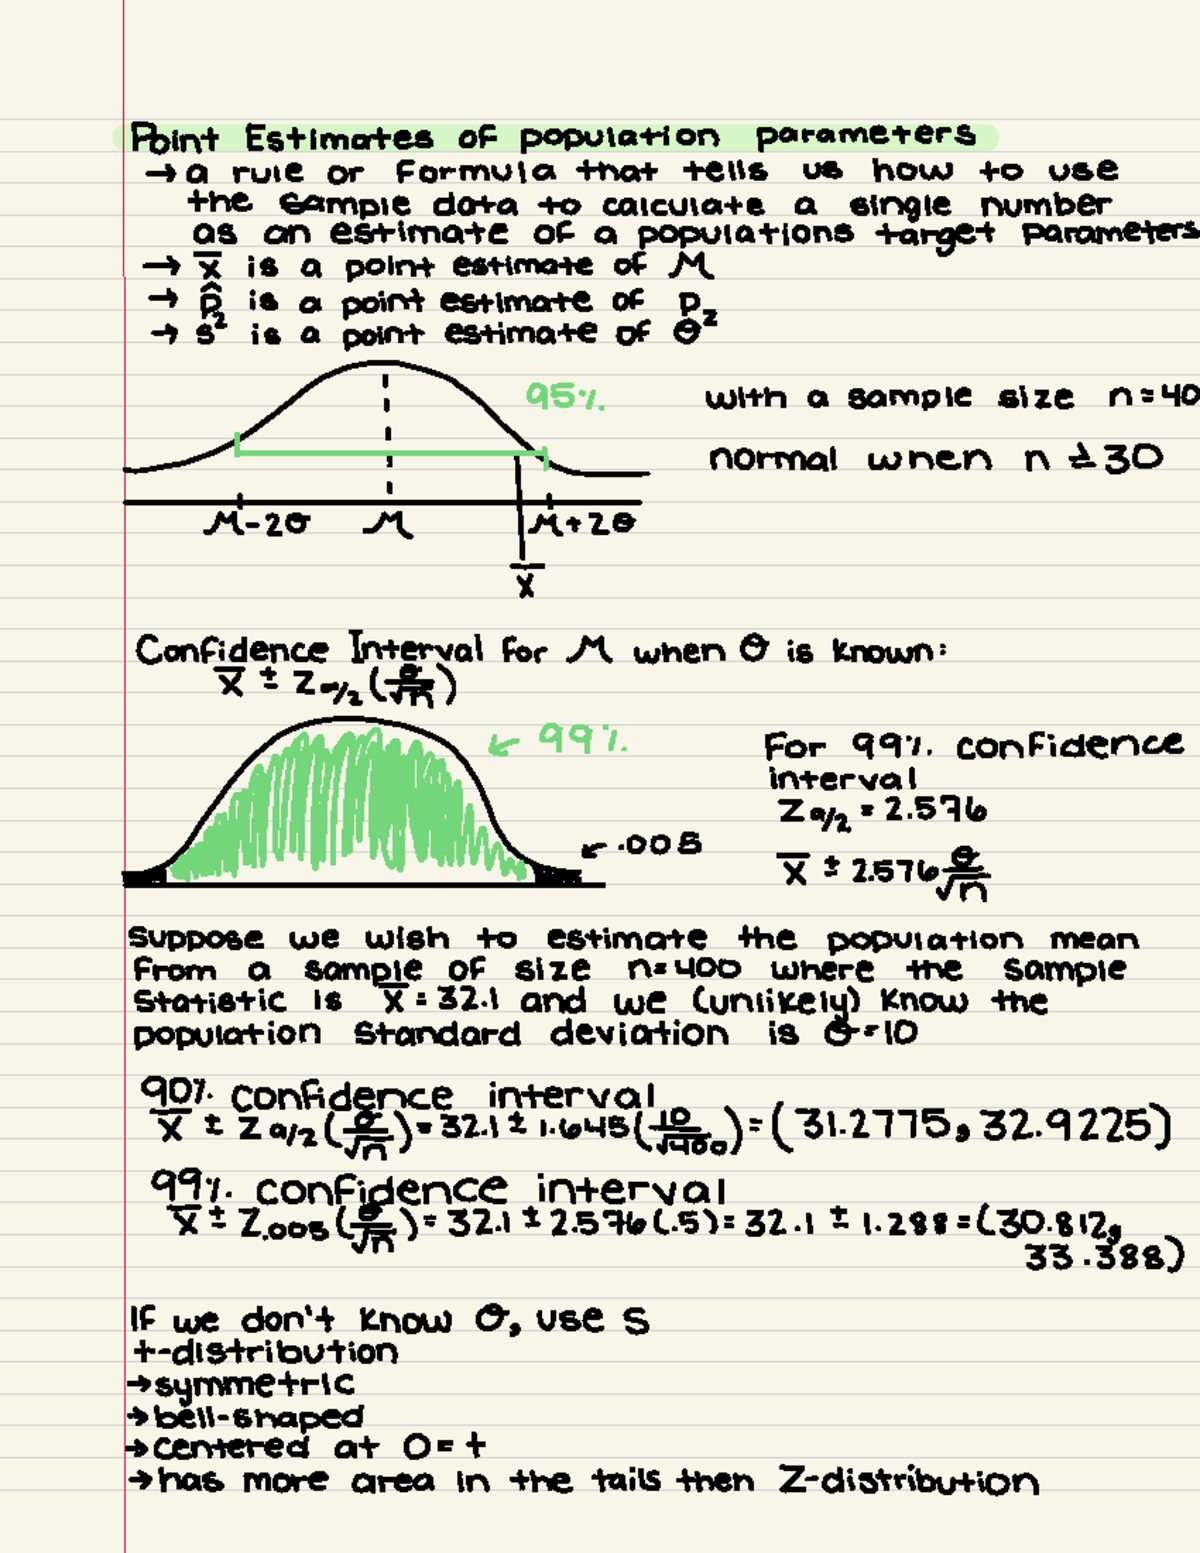 Point Estimates of population parameters
→ a rule or formula that tells us how to use
the sample data to calculate a single number
as an estimate of a populations target parameters
→ x̄ is a point estimate of μ
→ p̂ is a point estimate of p
→ s² is a point estimate of σ²
95%
with a sample size n=40
normal when n ≥30
μ-2σ μ μ+2σ
x̄
Confidence Interval for μ when σ is known:
x̄ ± Zα/2 (σ/√n)
← 99%
For 99% confidence
interval
Zα/2 = 2.576
← .005
x̄ ± 2.576 σ/√n
Suppose we wish to estimate the population mean
from a sample of size n=400 where the sample
statistic is x̄ = 32.1 and we (unlikely) know the
population standard deviation is σ=10
90% confidence interval
x̄ ± Zα/2 (σ/√n) = 32.1 ± 1.645 (10/√400) = (31.2775, 32.9225)
99% confidence interval
x̄ ± Z.005 (σ/√n) = 32.1 ± 2.576 (.5) = 32.1 ± 1.288 = (30.812,
33.388)
If we don't know σ, use s
t-distribution
→ symmetric
→ bell-shaped
→ centered at 0= t
→ has more area in the tails then Z-distribution